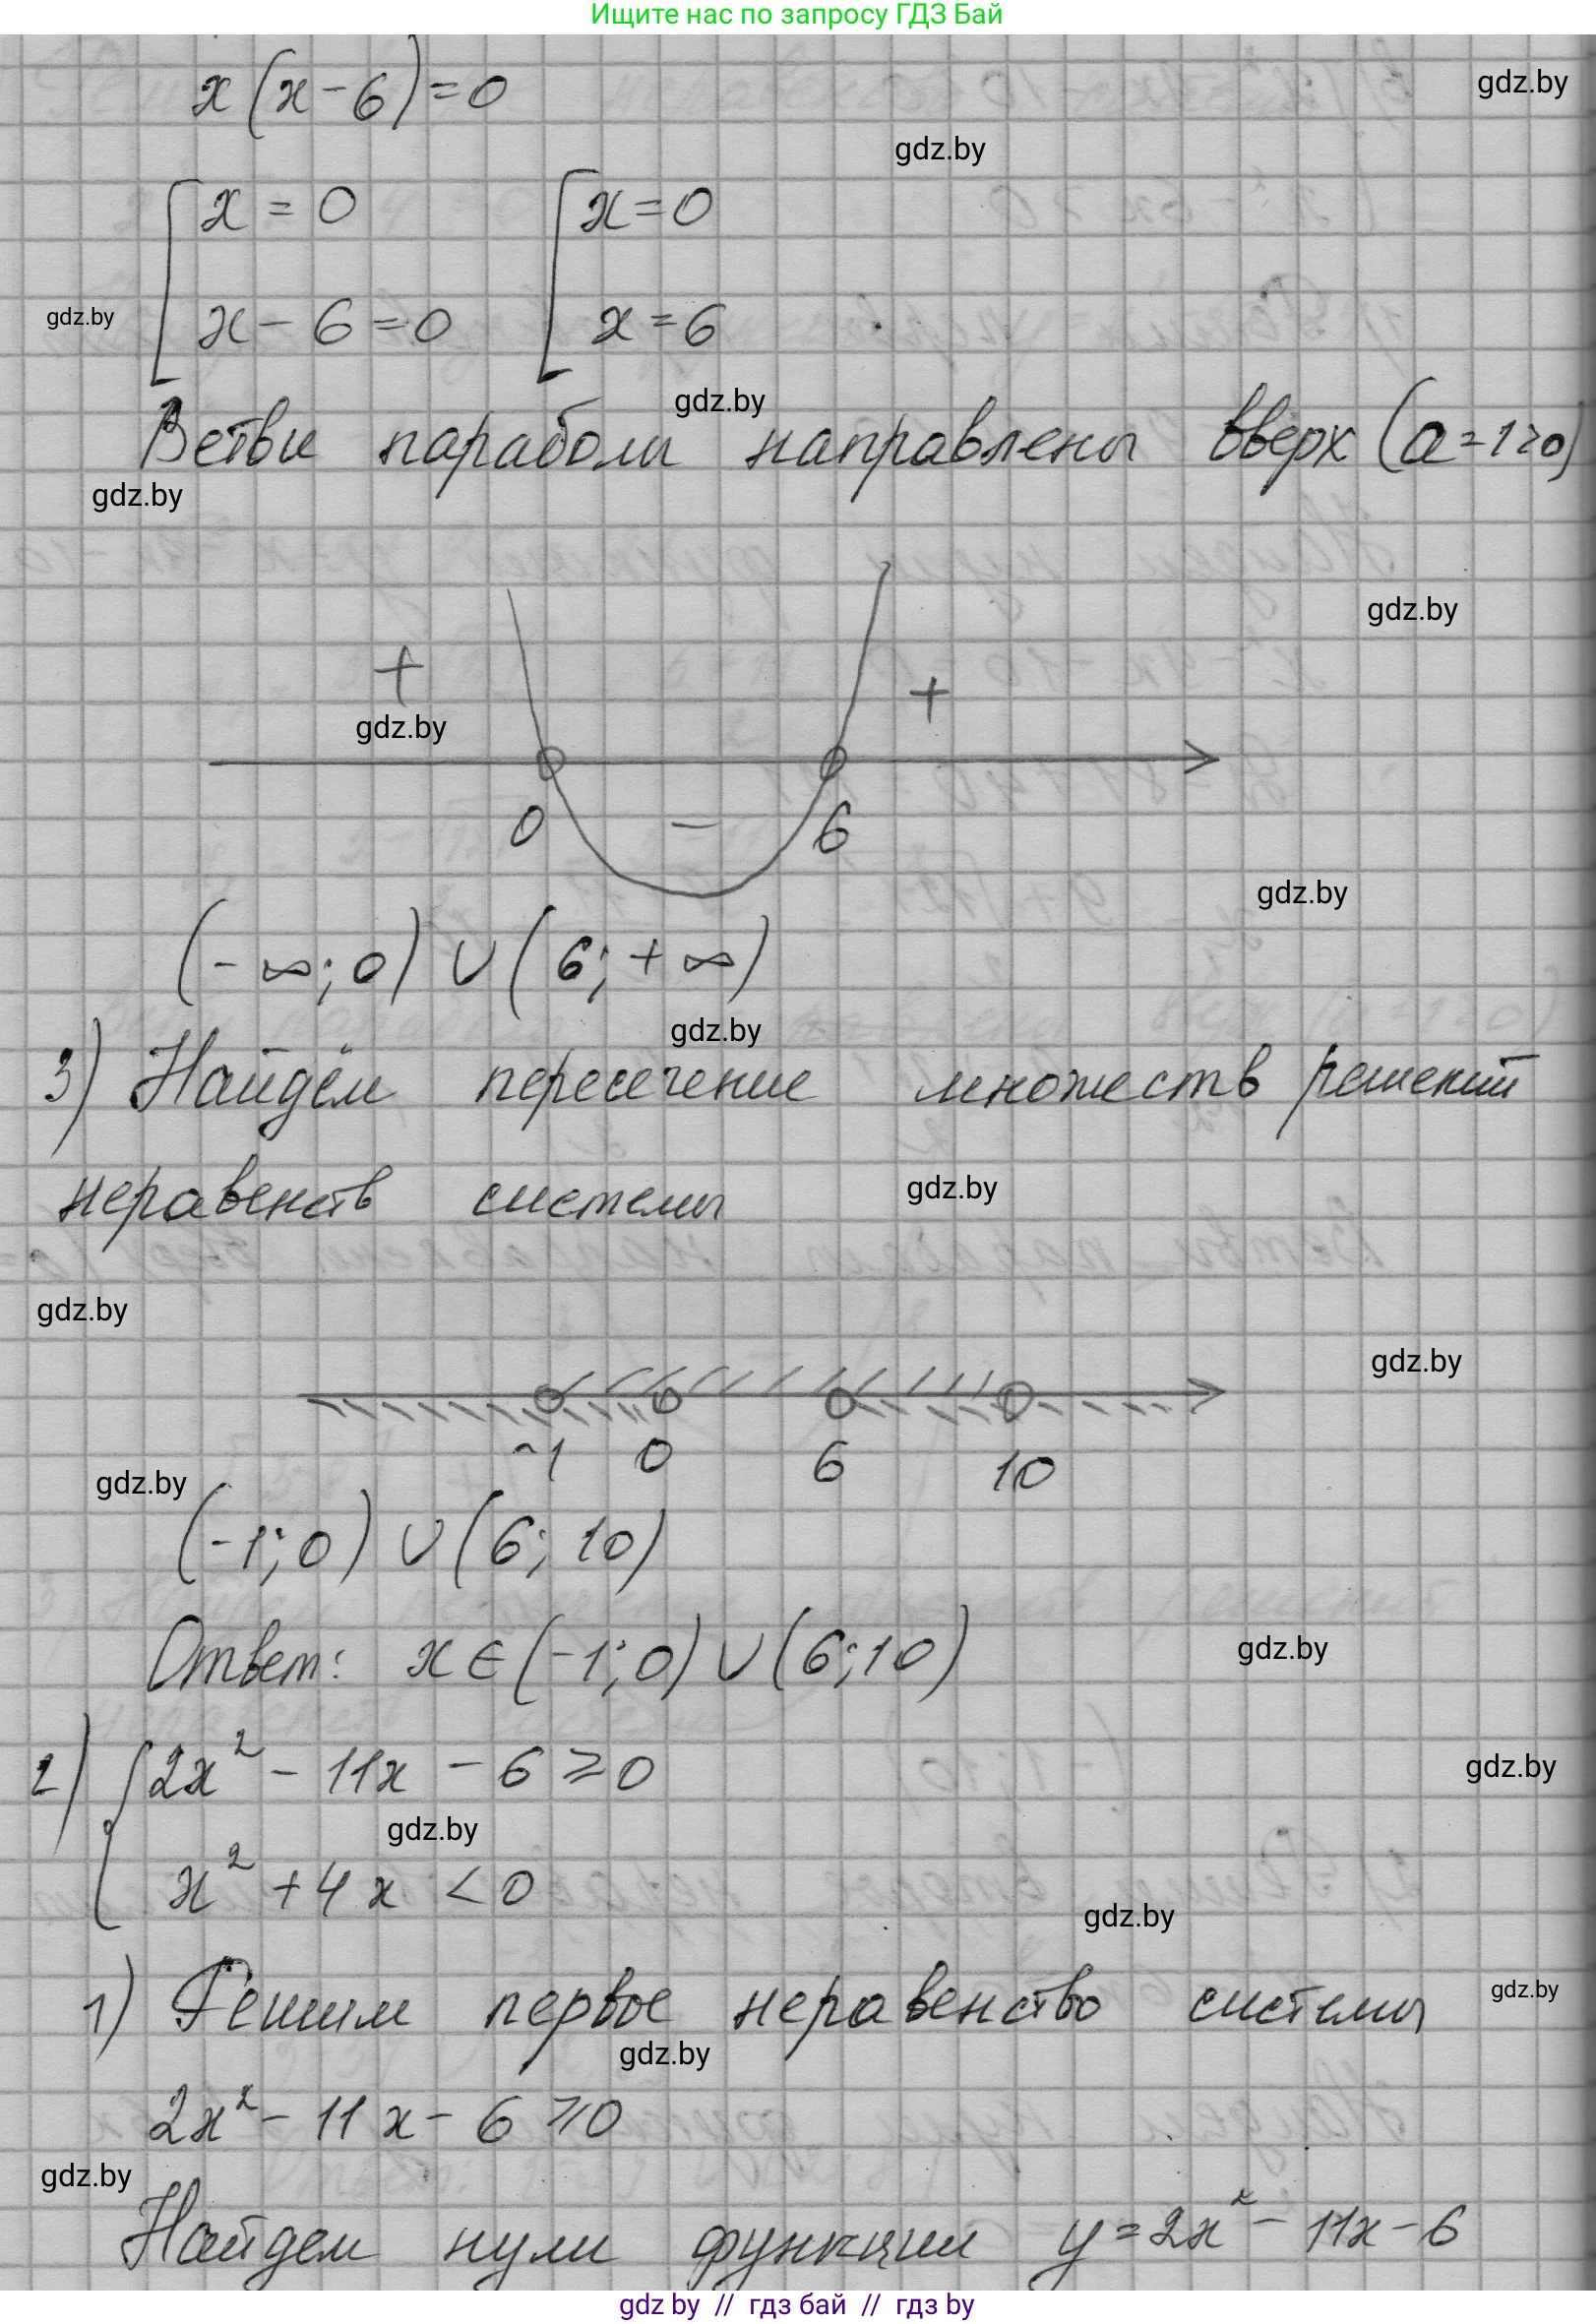 Ищите нас по запросу ГДЗ Бай
x(x-6)=0
gdz.by
gdz.by
x=0 x=0
gdz.by
x-6=0 x=6
gdz.by
Ветви параболы направлены вверх (a=1>0)
gdz.by
gdz.by
+ +
gdz.by
0 - 6
gdz.by
(-∞;0) ∪ (6;+∞)
gdz.by
3) Найдём пересечение множеств решений
неравенств системы
gdz.by
gdz.by
gdz.by
-1 0 6 10
gdz.by
(-1;0) ∪ (6;10)
Ответ: x∈(-1;0)∪(6;10)
gdz.by
2) { 2x² - 11x - 6 ≥ 0
gdz.by
gdz.by
x² + 4x < 0
gdz.by
1) Решим первое неравенство системы
gdz.by
gdz.by
2x² - 11x - 6 ≥ 0
gdz.by
Найдем нули функции y=2x² - 11x - 6
gdz by // гдз бай // гдз by